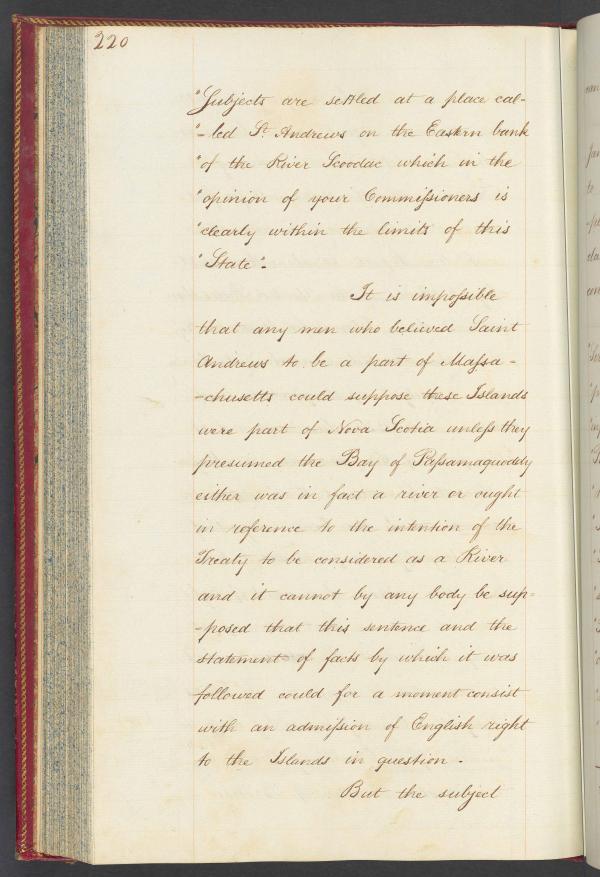 220
"Subjects are settled at a place cal-
"-led St. Andrews on the Eastern bank
"of the River Scoodac which in the
"opinion of your Commissioners is
"clearly within the limits of this
"State".
It is impossible
that any men who believed Saint
Andrews to be a part of Massa-
-chusetts could suppose these Islands
were part of Nova Scotia unless they
presumed the Bay of Passamaquoddy
either was in fact a river or ought
in reference to the intention of the
Treaty to be considered as a River
and it cannot by any body be sup-
-posed that this sentence and the
statement of facts by which it was
followed could for a moment consist
with an admission of English right
to the Islands in question.
But the subject